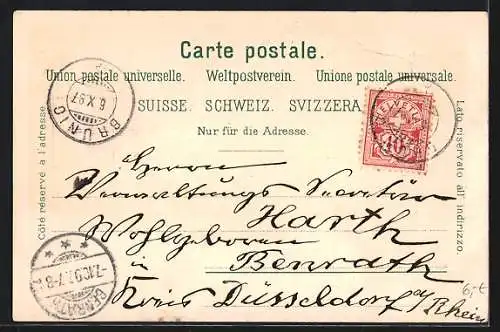 Carte postale.
Union postale universelle. Weltpostverein. Unione postale universale.
SUISSE. SCHWEIZ. SVIZZERA.
Nur für die Adresse.
Côté réservé à l'adresse.
Lato riservato all' indirizzo.
BRÜNIG
6 X 97
10
Herrn
Verwaltungs Secretär
Harth
Wohlgeboren
in
Benrath
Kreis Düsseldorf a/Rhein
BENRATH
7.10.97. 7-8